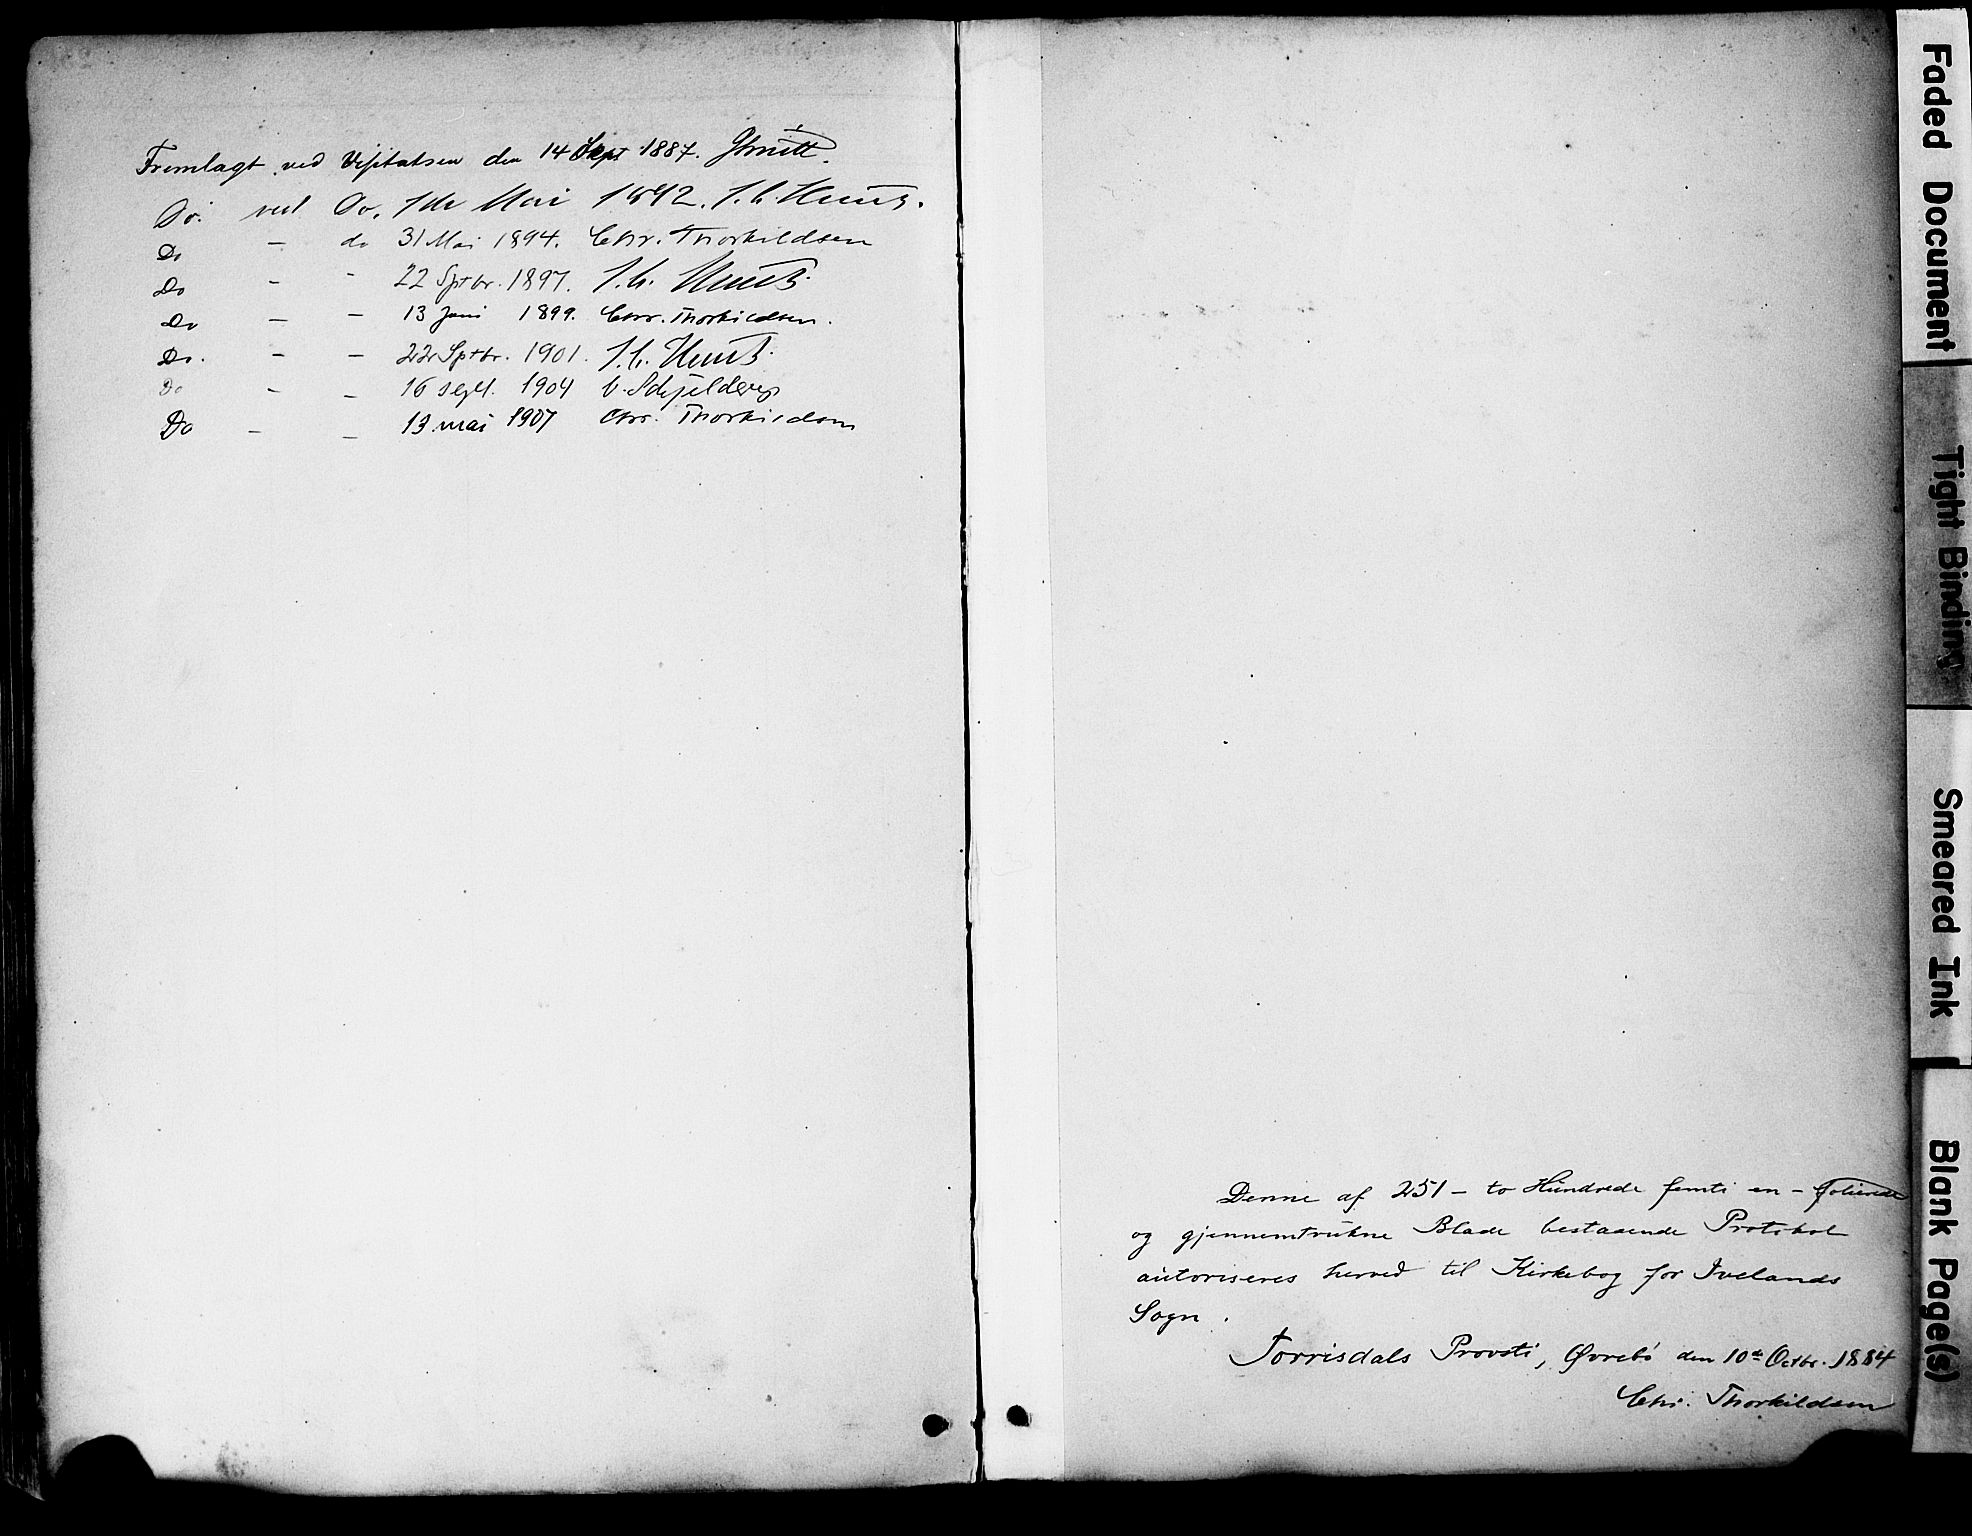 Fremlagt ved Visitatsen den 14 Sept 1887.
Do. ved Do. 1ste Mai 1892. J. C. Heuch.
Do – do 31 Mai 1894. Chr. Thorkildsen
Do – – 22 Sptbr. 1897. J. C. Heuch.
Do – – 13 Juni 1899. Chr. Thorkildsen.
Do. – – 22 Sptbr. 1901. J. C. Heuch.
Do – – 16 sept. 1904 Schjelderup
Do – – 13 mai 1907 Chr. Thorkildsen
Denne af 251 – to Hundrede femti en – folierede
og gjennemtrukne Blade bestaaende Protokol
autoriseres herved til Kirkebog for Ivelands
Sogn.
Torrisdals Provsti, Øvrebø den 10de Octbr. 1884
Chr. Thorkildsen
Faded Document
Tight Binding
Smeared Ink
Blank Page(s)